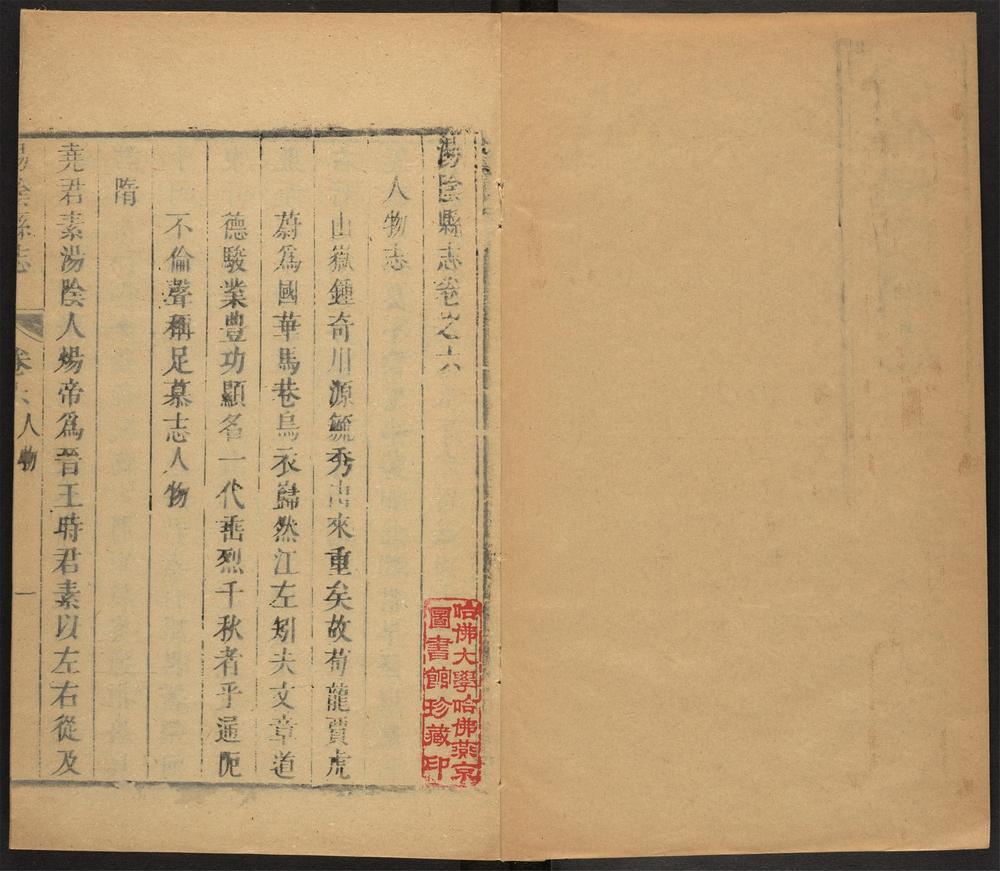 湯陰縣志卷之六
人物志
山嶽鍾奇川源毓秀由來重矣故荀龍賈虎
蔚爲國華馬巷烏衣巋然江左矧夫文章道
德駿業豐功顯名一代垂烈千秋者乎遥阨
不倫聲稱足慕志人物
隋
堯君素湯陰人煬帝爲晋王時君素以左右從及
湯陰縣志
卷六人物
一
哈佛大學哈佛燕京
圖書館珍藏印